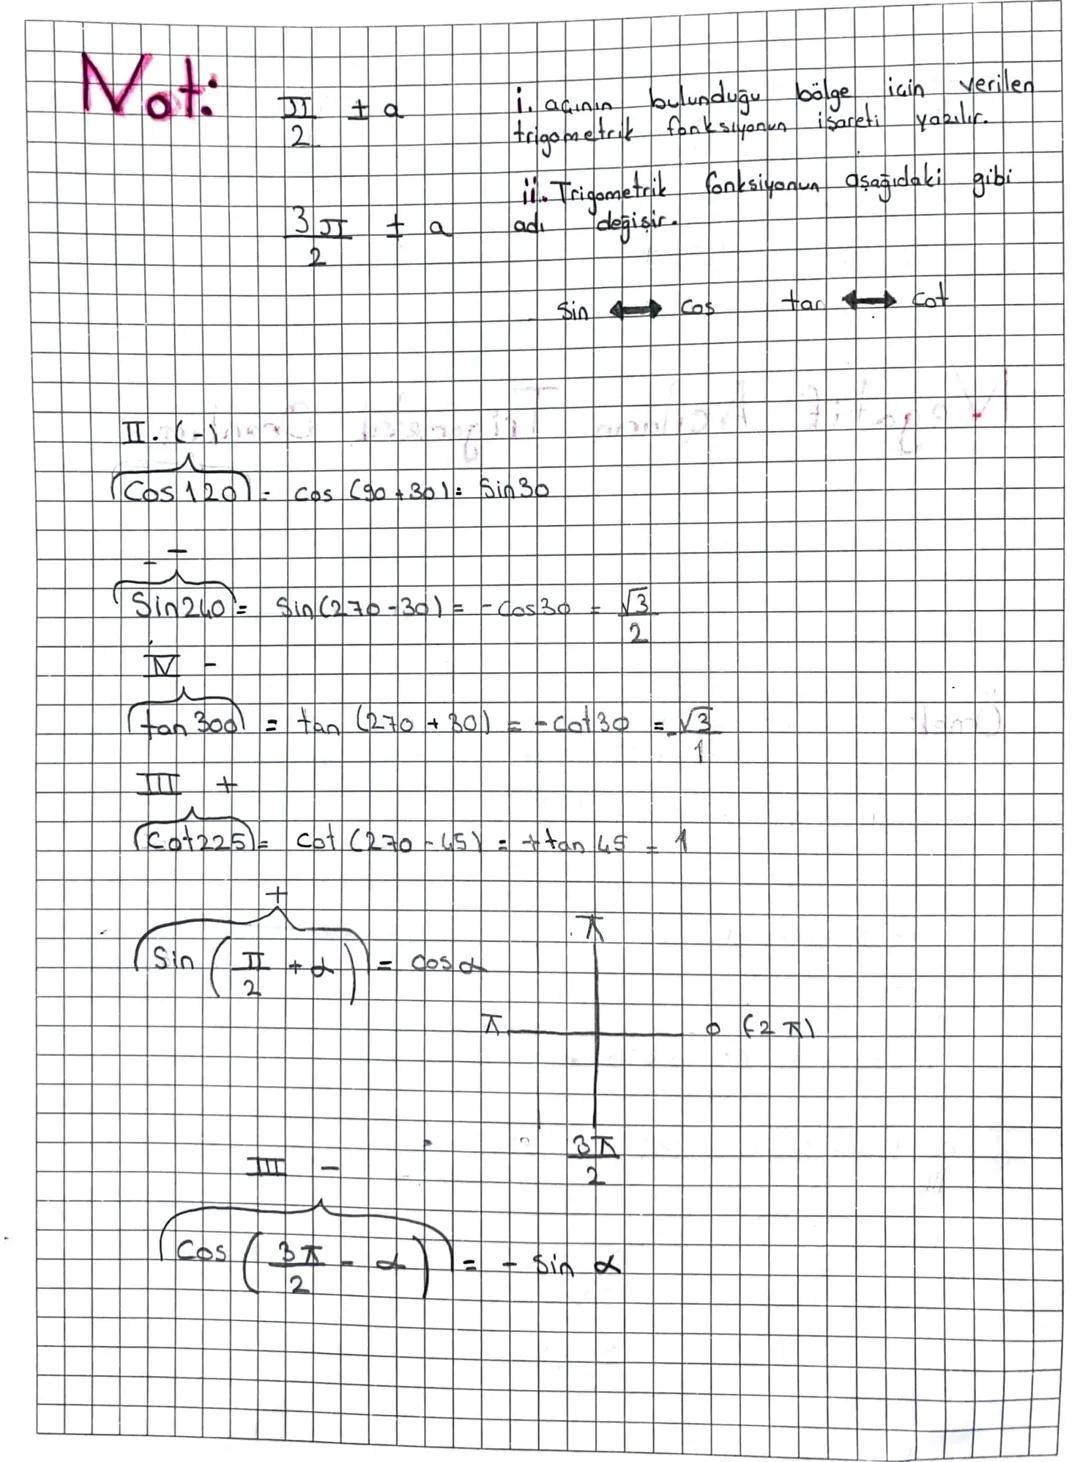 Not:
π/2 ± a
i. açının bulunduğu bölge için verilen
trigometrik fonksiyonun işareti yazılır.
ii. Trigometrik fonksiyonun aşağıdaki gibi
3π/2 ± a
adı değişir.
Sin ↔ Cos tan ↔ Cot
II. (-)
Cos 120 = cos (90 + 30) = Sin 30
- -
Sin 240 = Sin (270 - 30) = - Cos 30 = √3/2
IV -
tan 300 = tan (270 + 30) = - cot 30 = -√3/1
III +
Cot 225 = cot (270 - 45) = + tan 45 = 1
+
Sin (π/2 + α) = cos α
π
π 0 (2π)
3π/2
III -
Cos (3π/2 - α) = - sin α